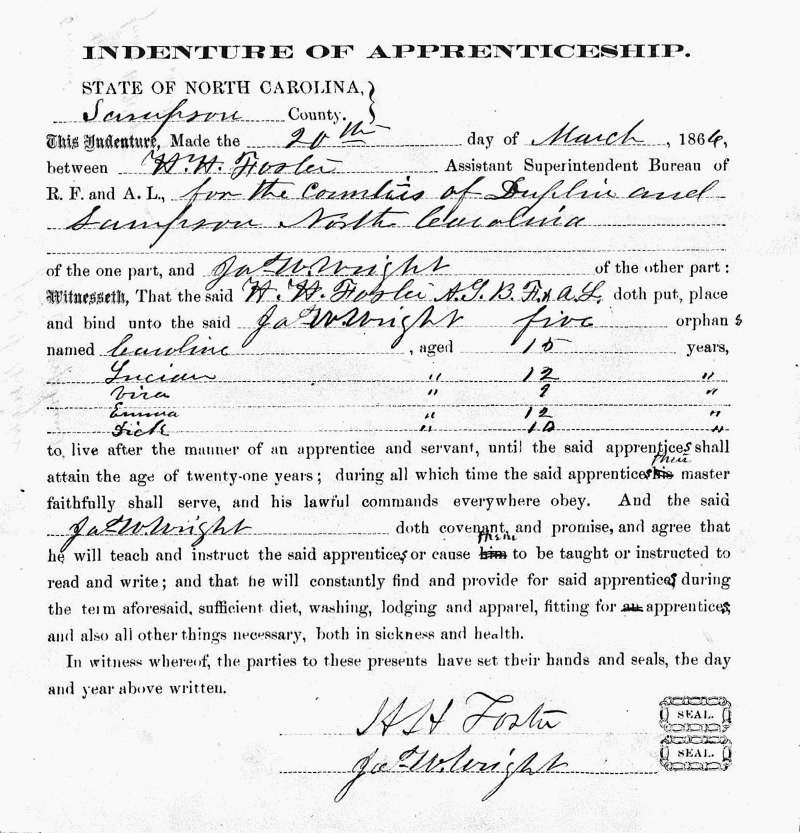 INDENTURE OF APPRENTICESHIP.
STATE OF NORTH CAROLINA,
Sampson County.
This Indenture, Made the 20th day of March, 1866,
between H. H. Foster Assistant Superintendent Bureau of
R. F. and A. L., for the Counties of Duplin and
Sampson North Carolina
of the one part, and Jas. W. Wright of the other part:
Witnesseth, That the said H. H. Foster A.S.B.F.&A.L. doth put, place
and bind unto the said Jas W Wright five orphans
named Caroline, aged 15 years,
Lucian " 12 "
Vira " 9 "
Emma " 12 "
Dick " 10 "
to live after the manner of an apprentice and servant, until the said apprentices shall
attain the age of twenty-one years; during all which time the said apprentices his their master
faithfully shall serve, and his lawful commands everywhere obey. And the said
Jas W Wright doth covenant, and promise, and agree that
he will teach and instruct the said apprentices or cause him them to be taught or instructed to
read and write; and that he will constantly find and provide for said apprentices during
the term aforesaid, sufficient diet, washing, lodging and apparel, fitting for an apprentices,
and also all other things necessary, both in sickness and health.
In witness whereof, the parties to these presents have set their hands and seals, the day
and year above written.
H H Foster SEAL.
Jas. W. Wright SEAL.